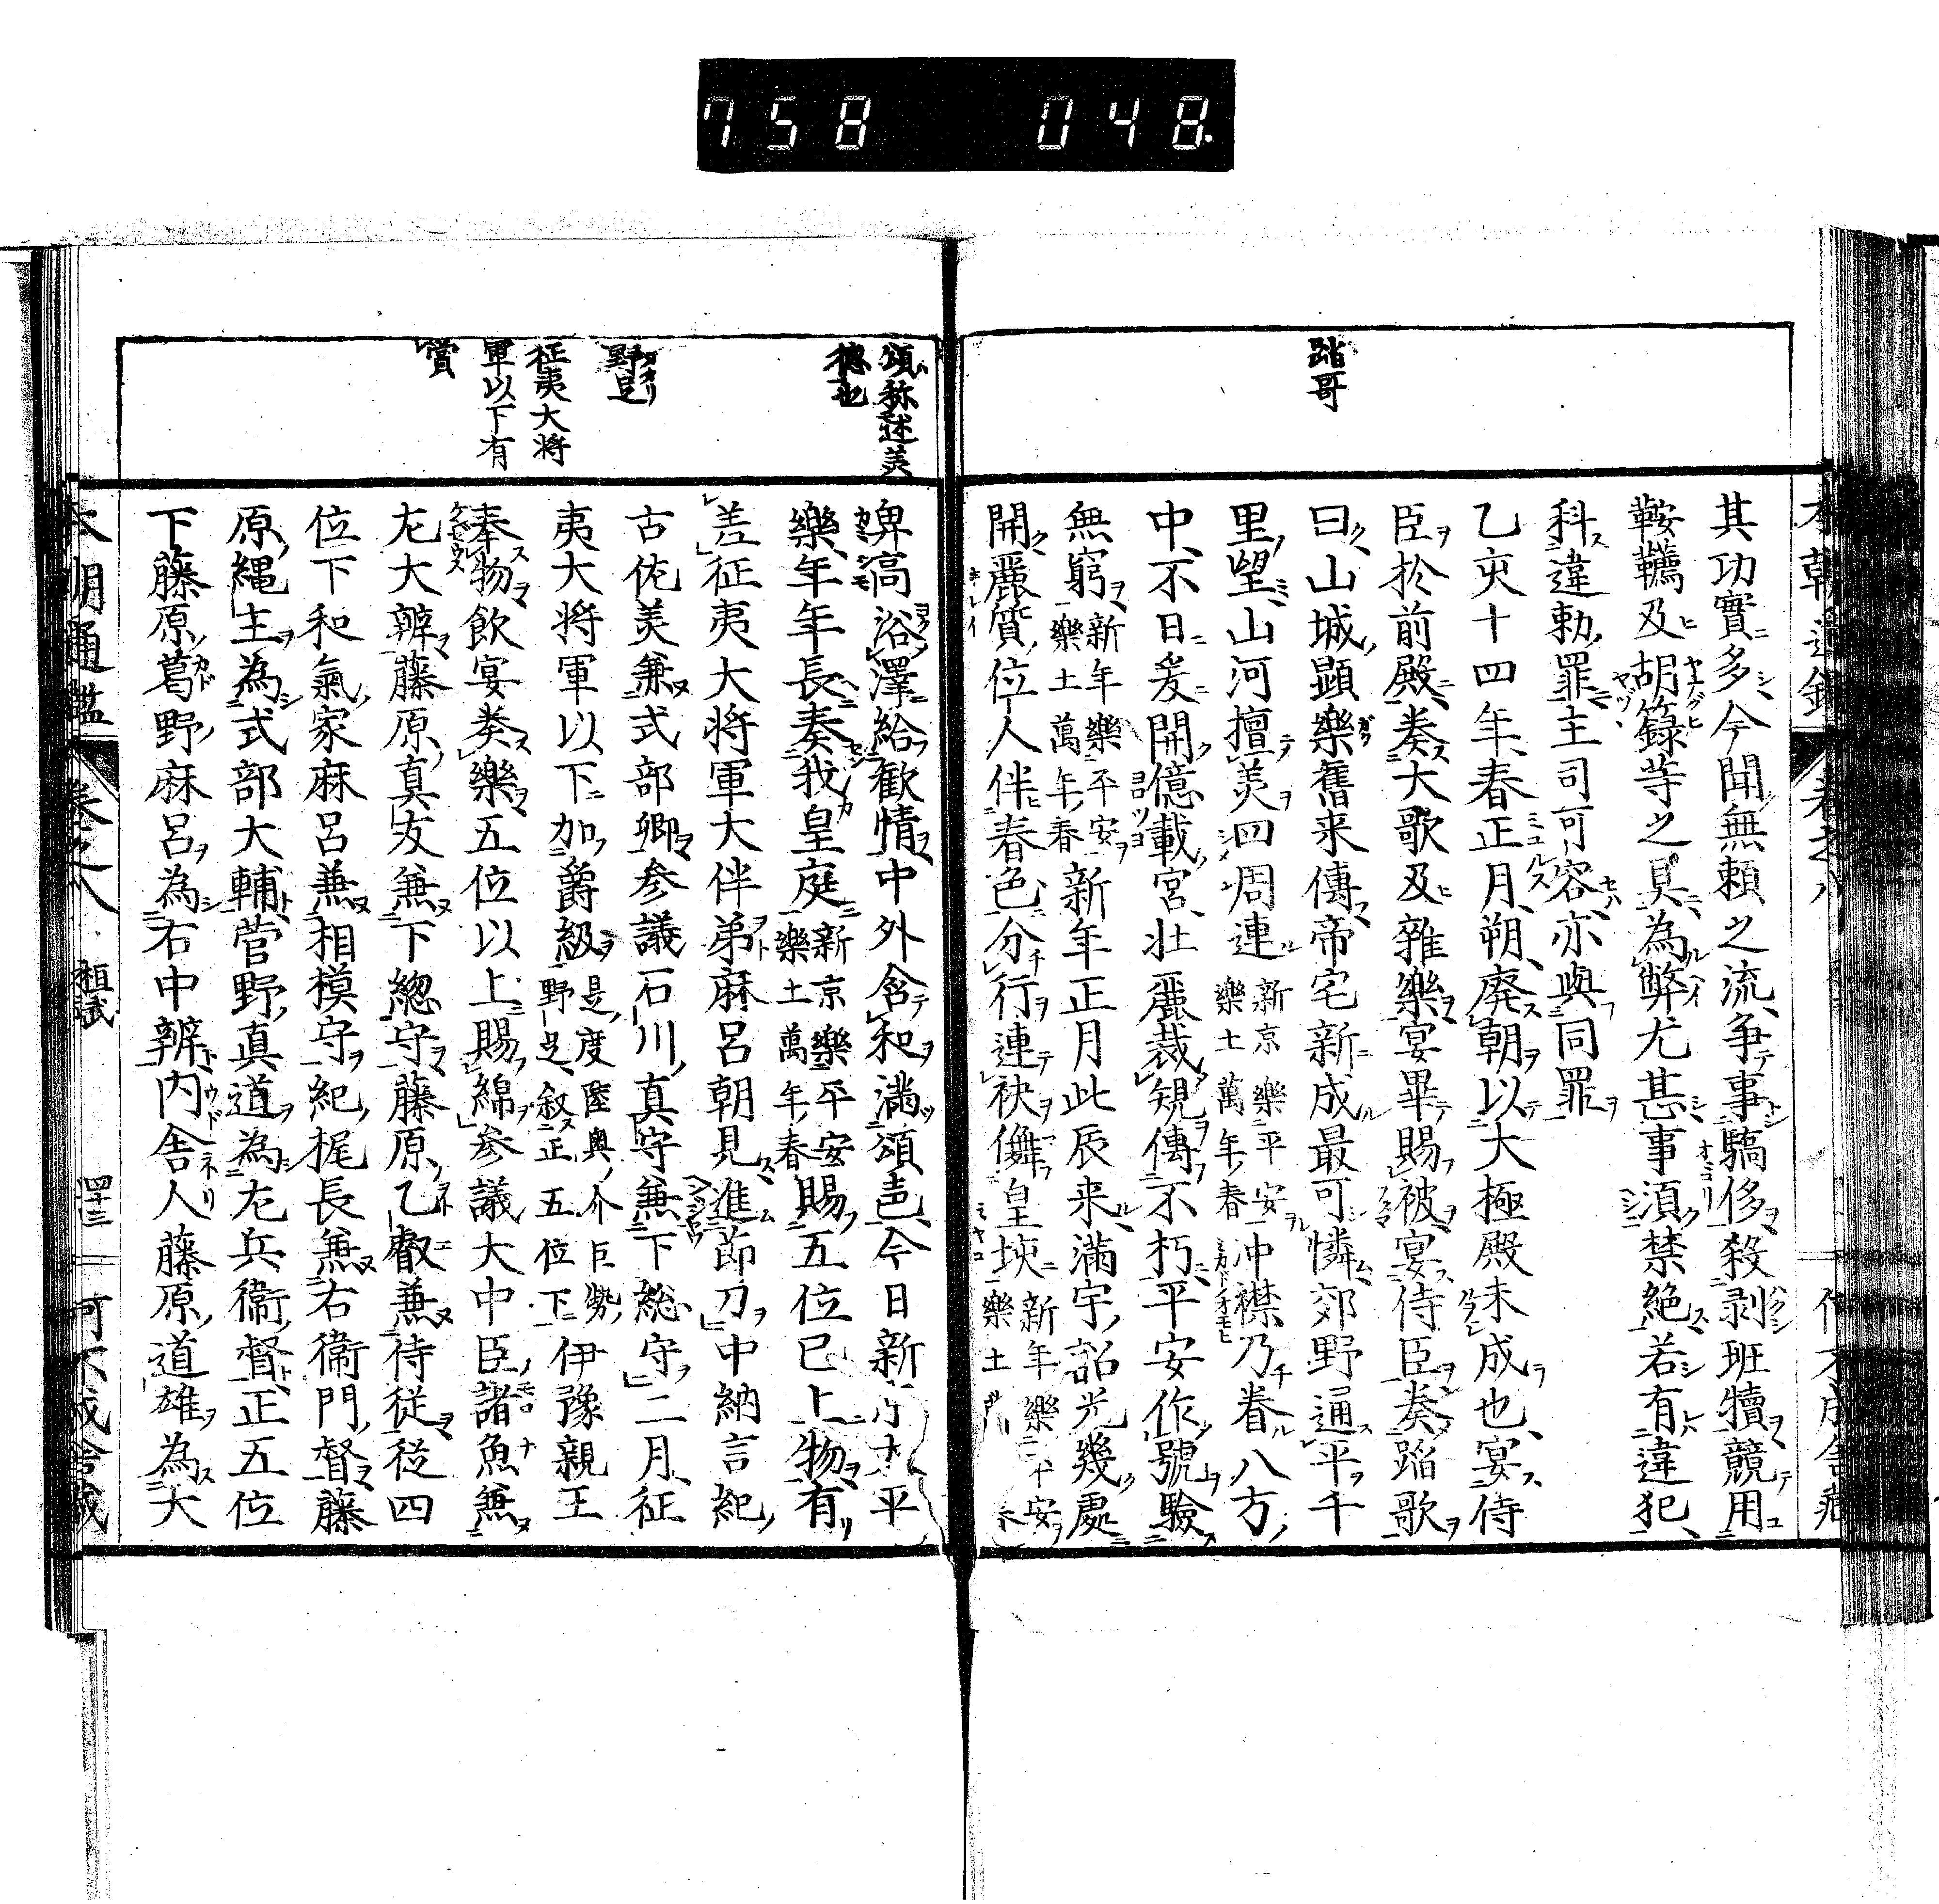 758 048.
踏哥
其功實多今聞無頼之流争事驕侈殺剥班犢競用
鞍韉及胡籙等之具為弊尤甚事湏禁絶若有違犯
科違勅罪主司可容亦與同罪
乙亥十四年春正月朔廃朝以大極殿未成也宴侍
臣於前殿奏大歌及雜樂宴畢賜被宴侍臣奏踏歌
曰山城顕樂舊来傳帝宅新成最可憐郊野通平千
里望山河擅羙四周連新京樂平安樂土萬年春冲襟乃眷八方
中不日爰開億載宮壮麗裁規傳不朽平安作號驗
無窮新年樂平安樂土萬年春新年正月此辰来満宇韶光幾處
開麗質位人伴春色分行連袂儛皇垓新年樂平安樂土
卑高浴澤給歓情中外含和満頌聲今日新平
樂年年長奏我皇庭新京樂平安樂土萬年春賜五位已上物有
差征夷大将軍大伴弟麻呂朝見進節刀中納言紀
古佐羙兼式部卿参議石川真守兼下総守二月征
夷大将軍以下加爵級是度陸奥介巨勢野足叙正五位下伊豫親王
奉物飲宴奏樂五位以上賜綿参議大中臣諸魚兼
左大辨藤原真友兼下總守藤原乙叡兼侍従従四
位下和氣家麻呂兼相模守紀梶長兼右衞門督藤
原縄主為式部大輔菅野真道為左兵衞督正五位
下藤原葛野麻呂為右中辨内舎人藤原道雄為大
頌称述羙
德也
野足
征夷大将
軍以下有
賞
本朝通鑑 卷之八 四十三